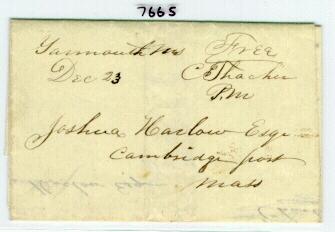 7665
Yarmouth Ms Free
Dec 23 C Thacher
P.M
Joshua Harlow Esqr
Cambridge port
Mass